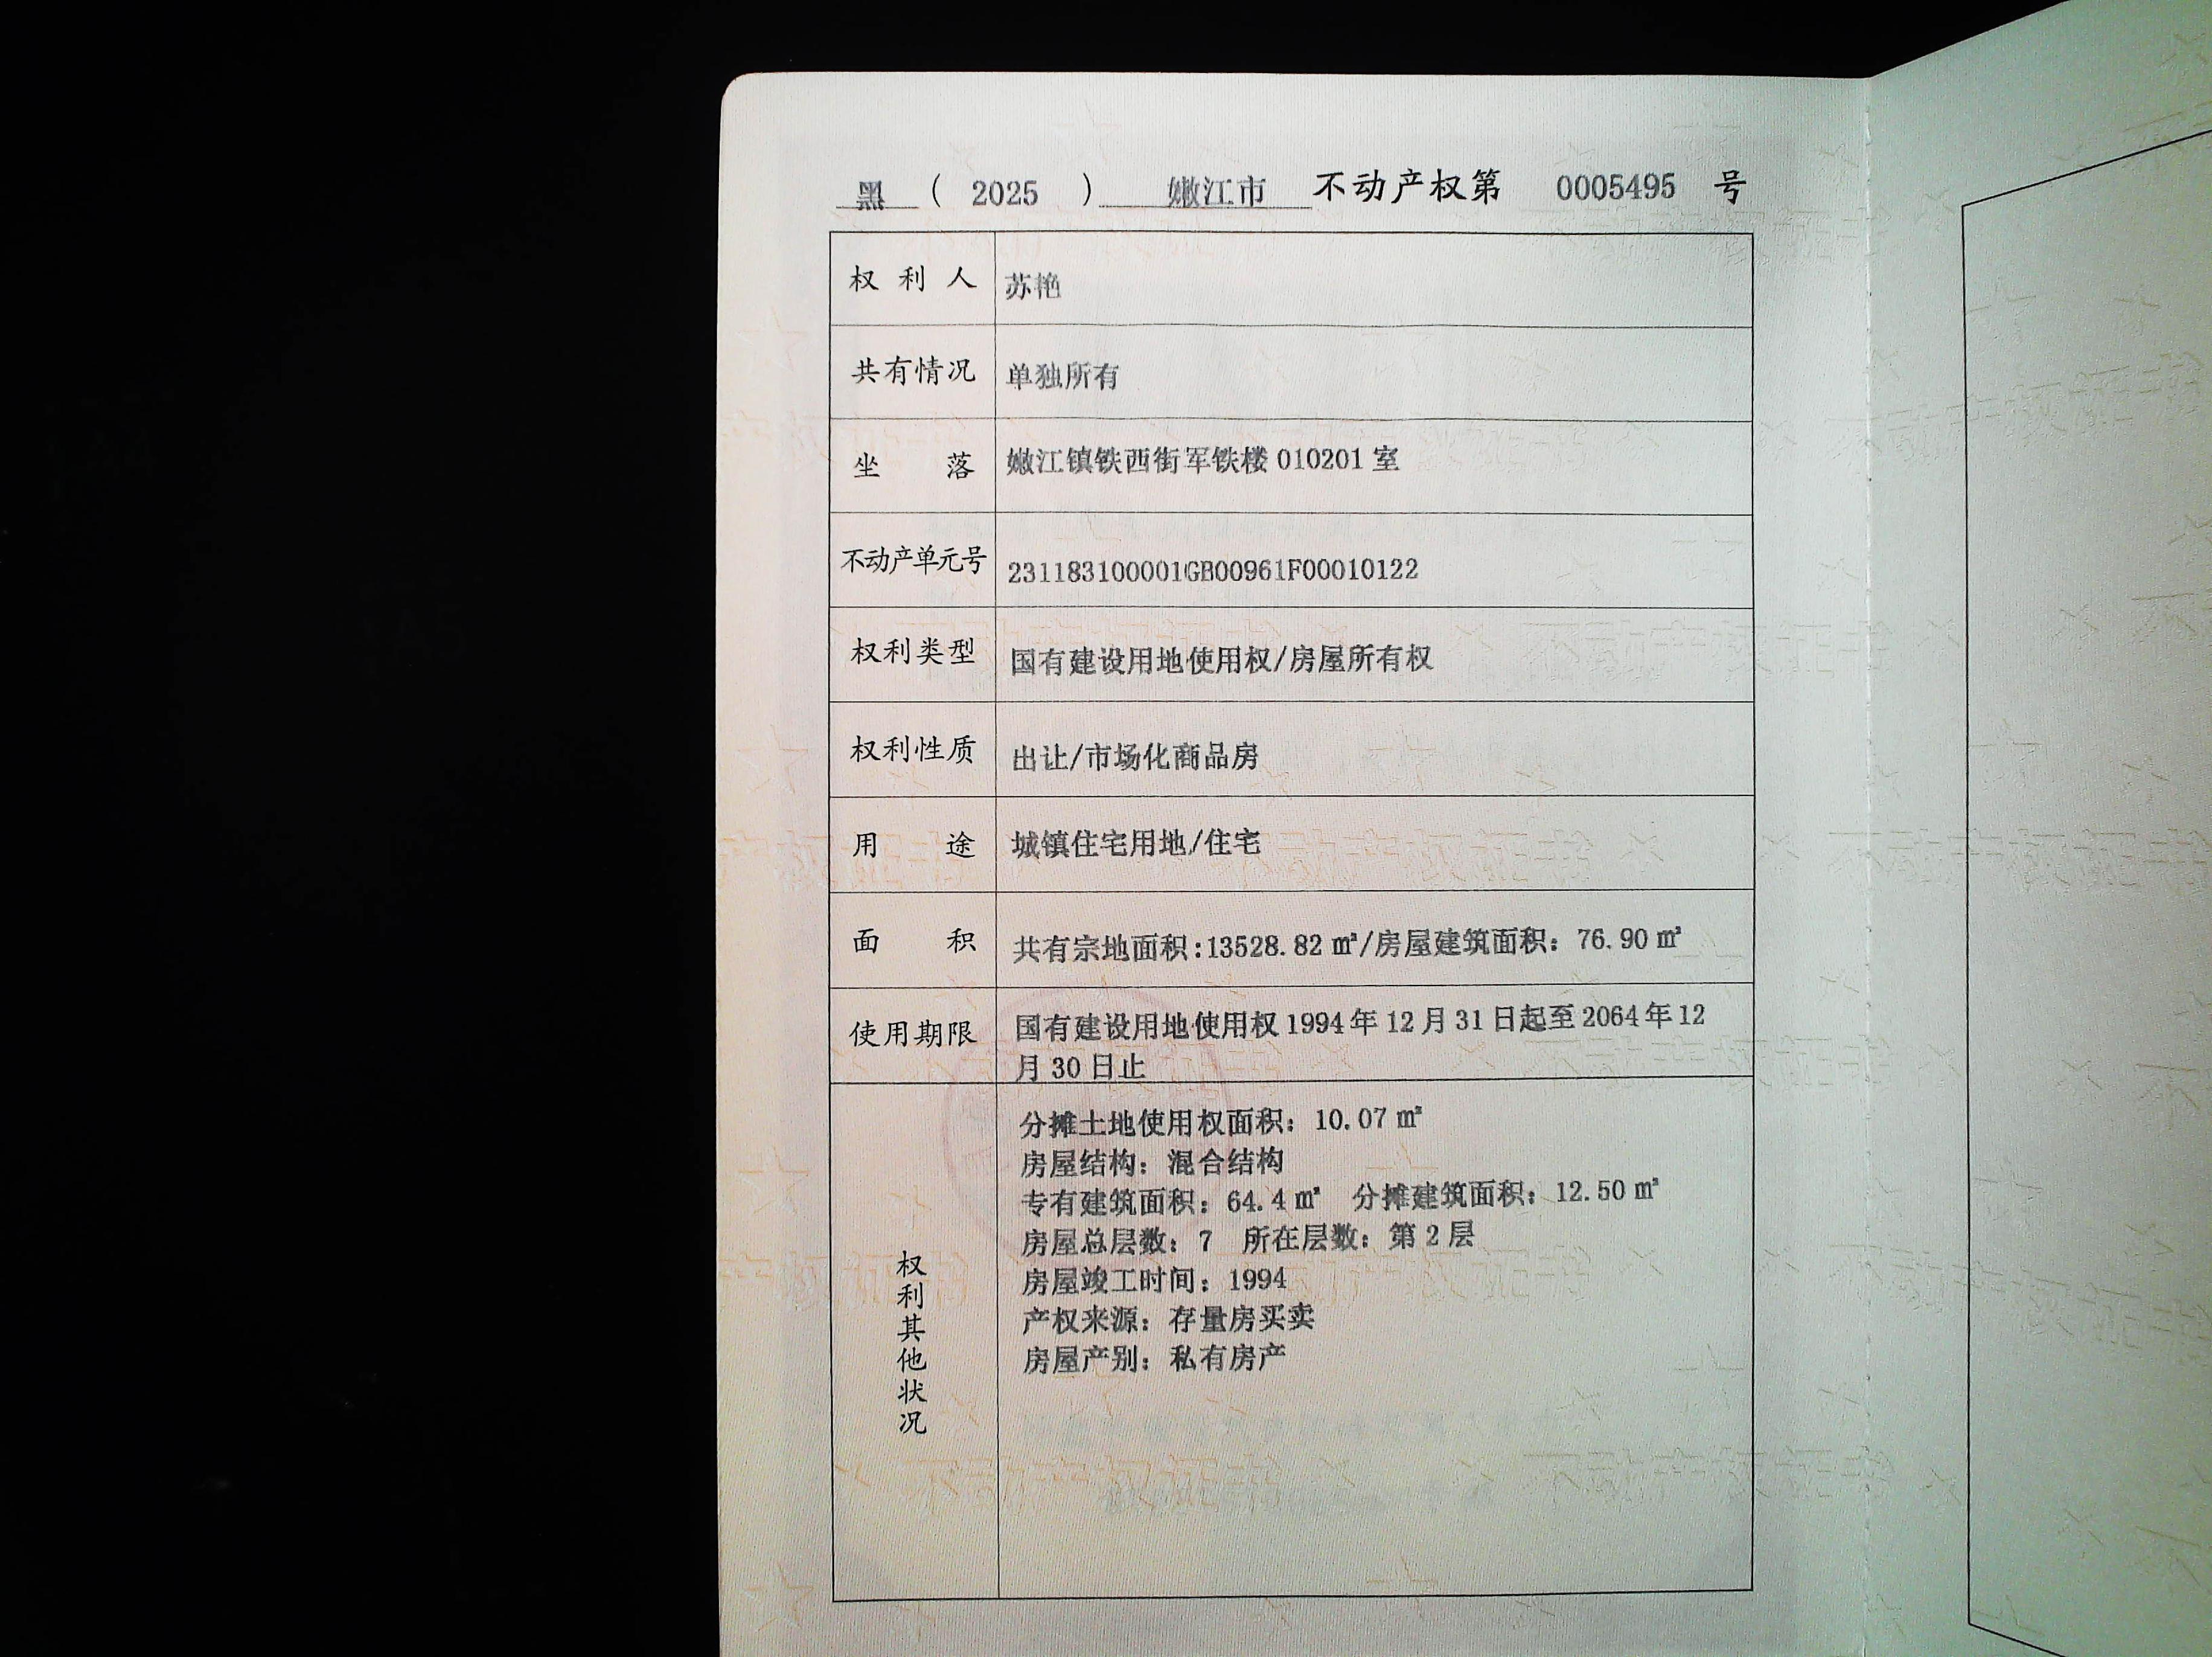 黑 ( 2025 ) 嫩江市 不动产权第 0005495 号
权利人 苏艳
共有情况 单独所有
坐落 嫩江镇铁西街军铁楼 010201 室
不动产单元号 231183100001GB00961F00010122
权利类型 国有建设用地使用权/房屋所有权
权利性质 出让/市场化商品房
用途 城镇住宅用地/住宅
面积 共有宗地面积:13528.82 ㎡/房屋建筑面积：76.90 ㎡
使用期限 国有建设用地使用权 1994 年 12 月 31 日起至 2064 年 12
月 30 日止
权利其他状况
分摊土地使用权面积：10.07 ㎡
房屋结构：混合结构
专有建筑面积：64.4 ㎡ 分摊建筑面积：12.50 ㎡
房屋总层数：7 所在层数：第 2 层
房屋竣工时间：1994
产权来源：存量房买卖
房屋产别：私有房产